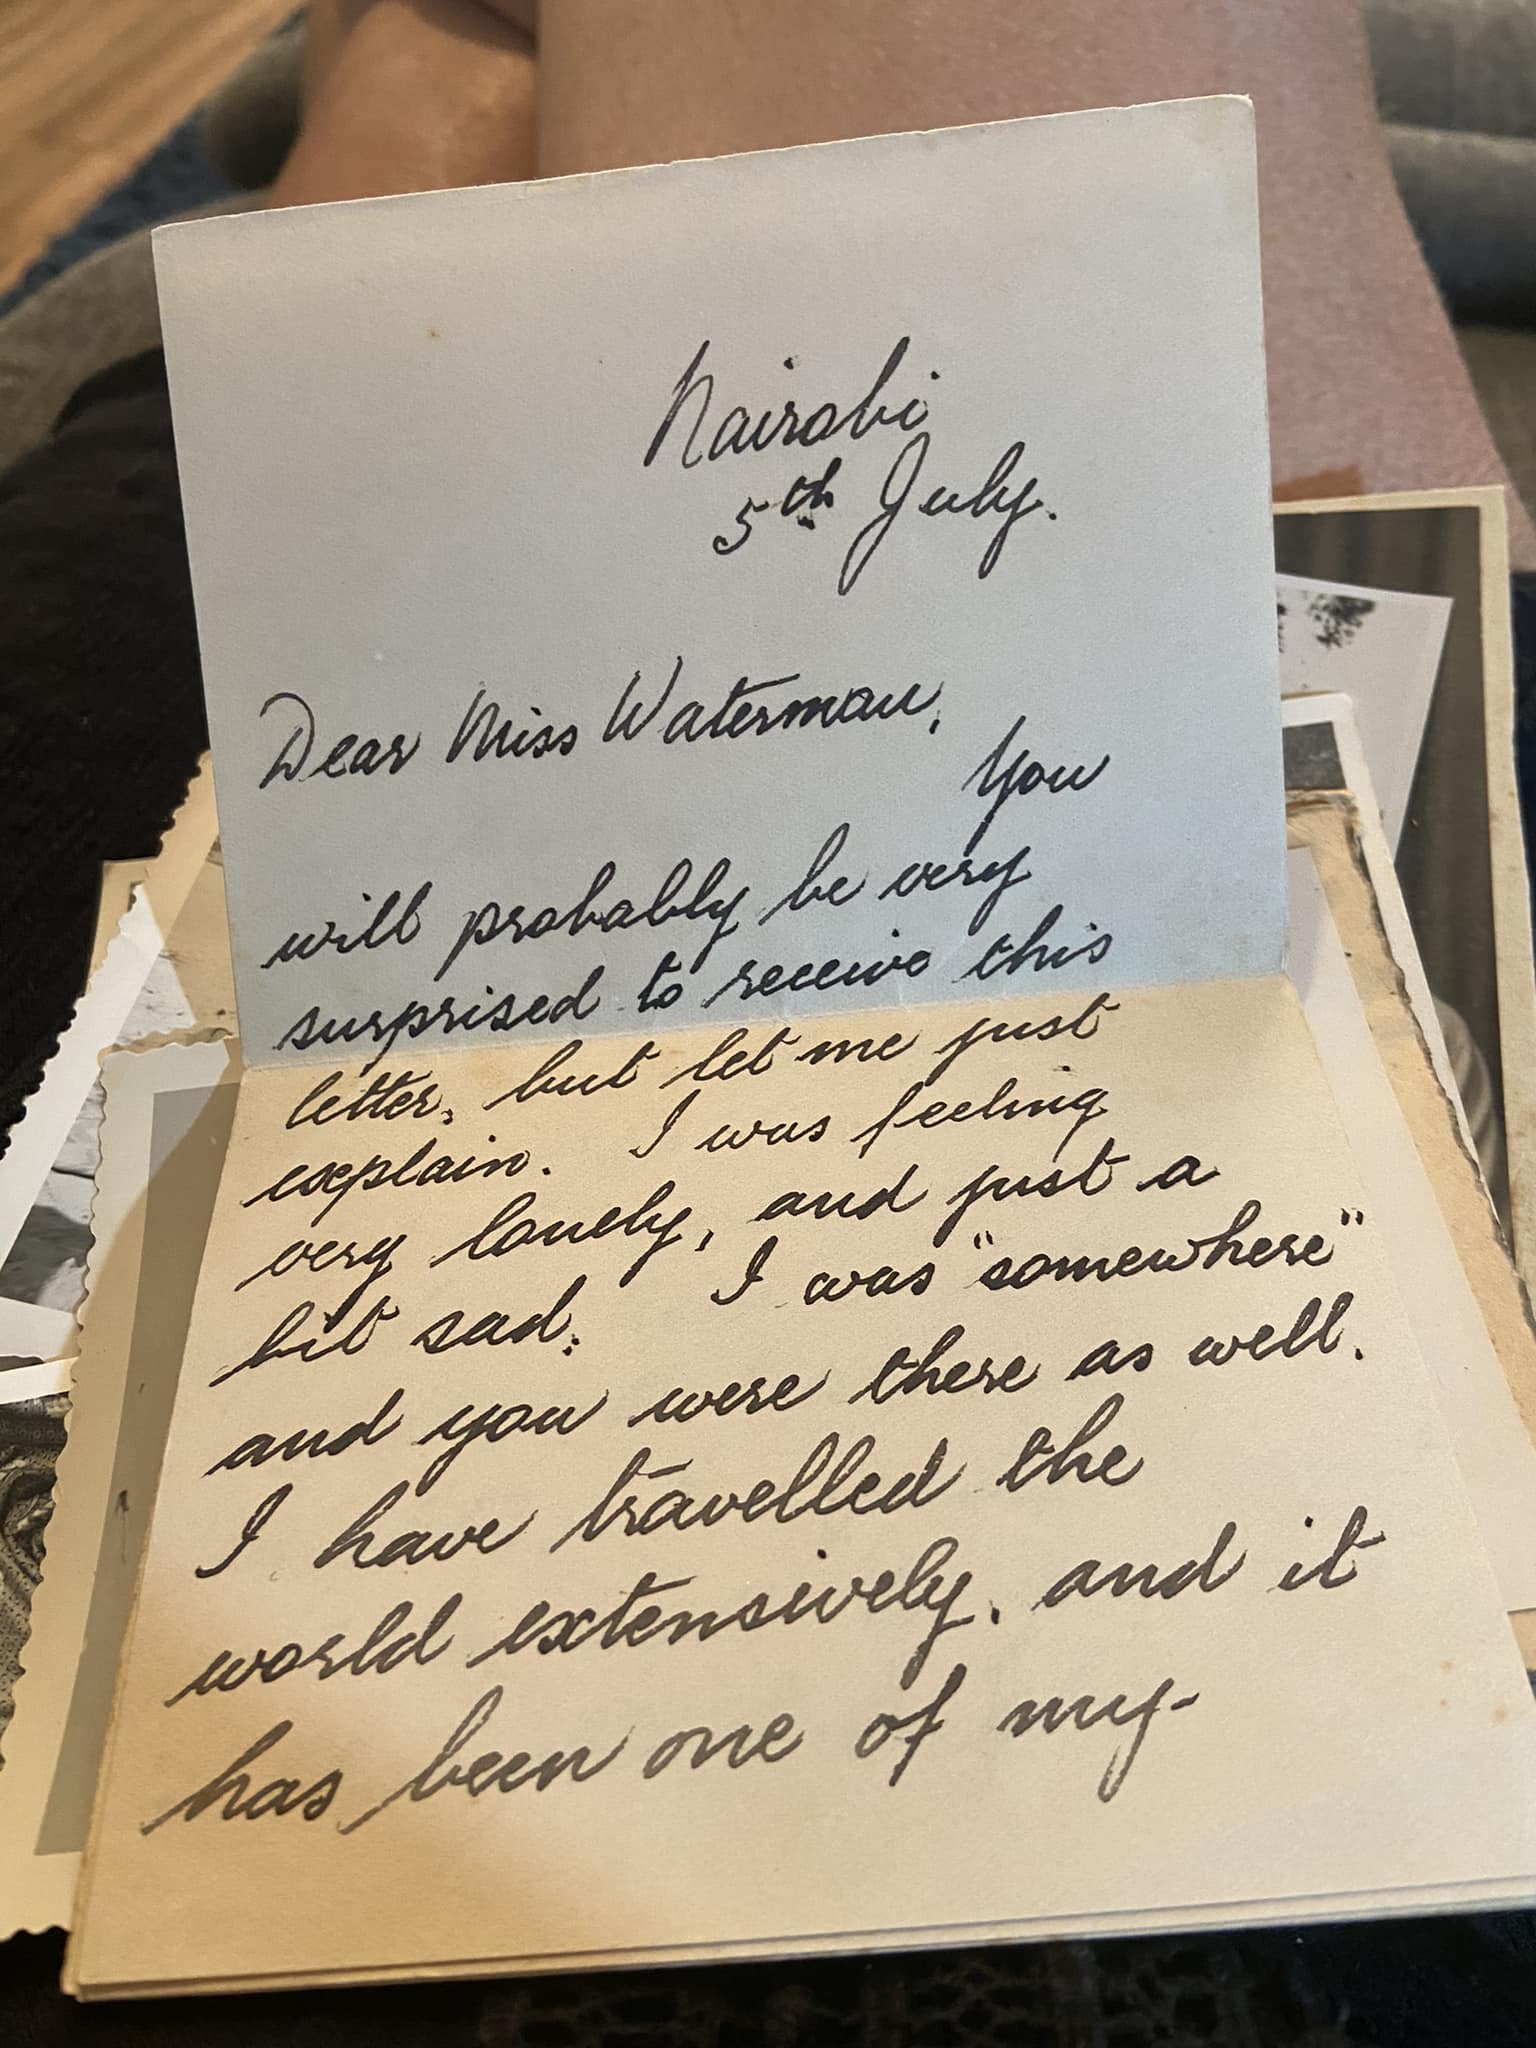 Nairobi
5th July.
Dear Miss Waterman,
You
will probably be very
surprised to receive this
letter, but let me just
explain. I was feeling
very lonely, and just a
bit sad. I was "somewhere"
and you were there as well.
I have travelled the
world extensively, and it
has been one of my-